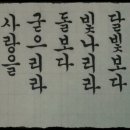 달빛보다
빛나리라
돌보다
굳으리라
사랑을